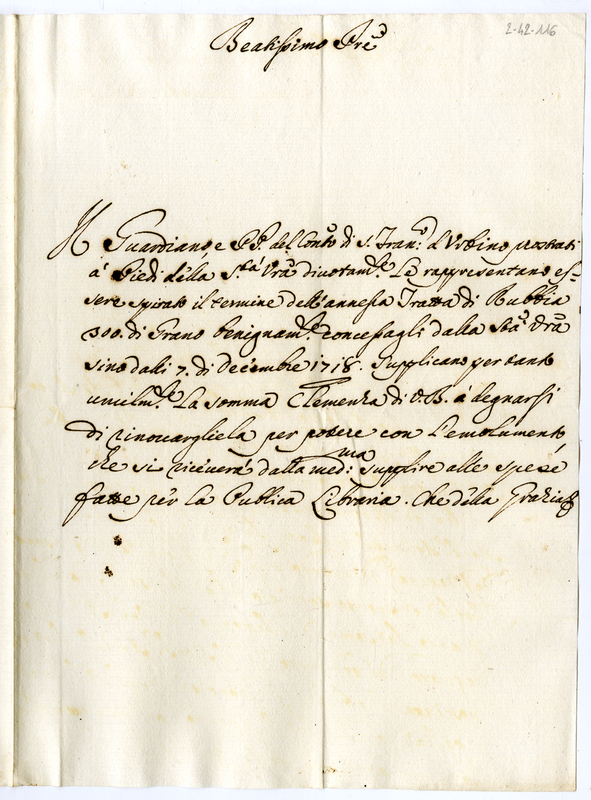 2-42-116
Beatissimo Pre
Il Guardiano, e PP. del Conto di S. Fran: d'Urbino prostrati
à Piedi della S.tà Vra divotam.te Le rappresentano es=
sere spirato il termine dell'annessa Tratta di Rubbia
300. di Grano benignam.te concessagli dalla Stà Vrà
sino dalli 7. di Decembre 1718. Supplicano per tanto
umilm.te La somma Clemenza di V.B. à degnarsi
di rinovargliela per potere con l'emolumento,
che si riceverà dalla med:ma supplire alle spese
fatte per la Publica Libraria. Che della Grazia